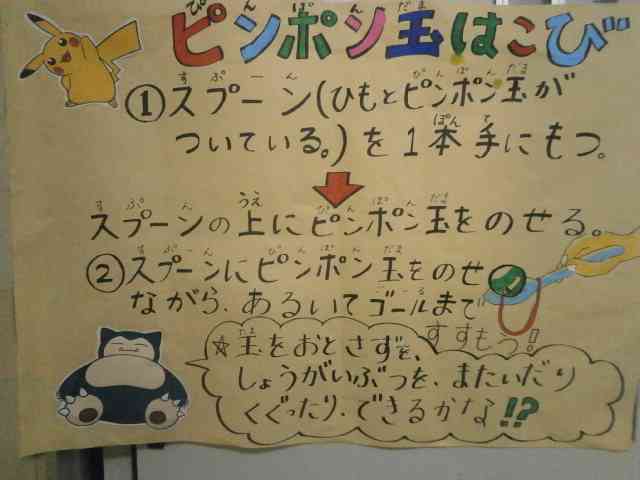 ピンポン玉はこび
①スプーン(ひもとピンポン玉が
ついている。)を1本手にもつ。
スプーンの上にピンポン玉をのせる。
②スプーンにピンポン玉をのせ
ながら、あるいてゴールまで
すすもう!
☆玉をおとさずを、
しょうがいぶつを、またいだり
くぐったり、できるかな!?